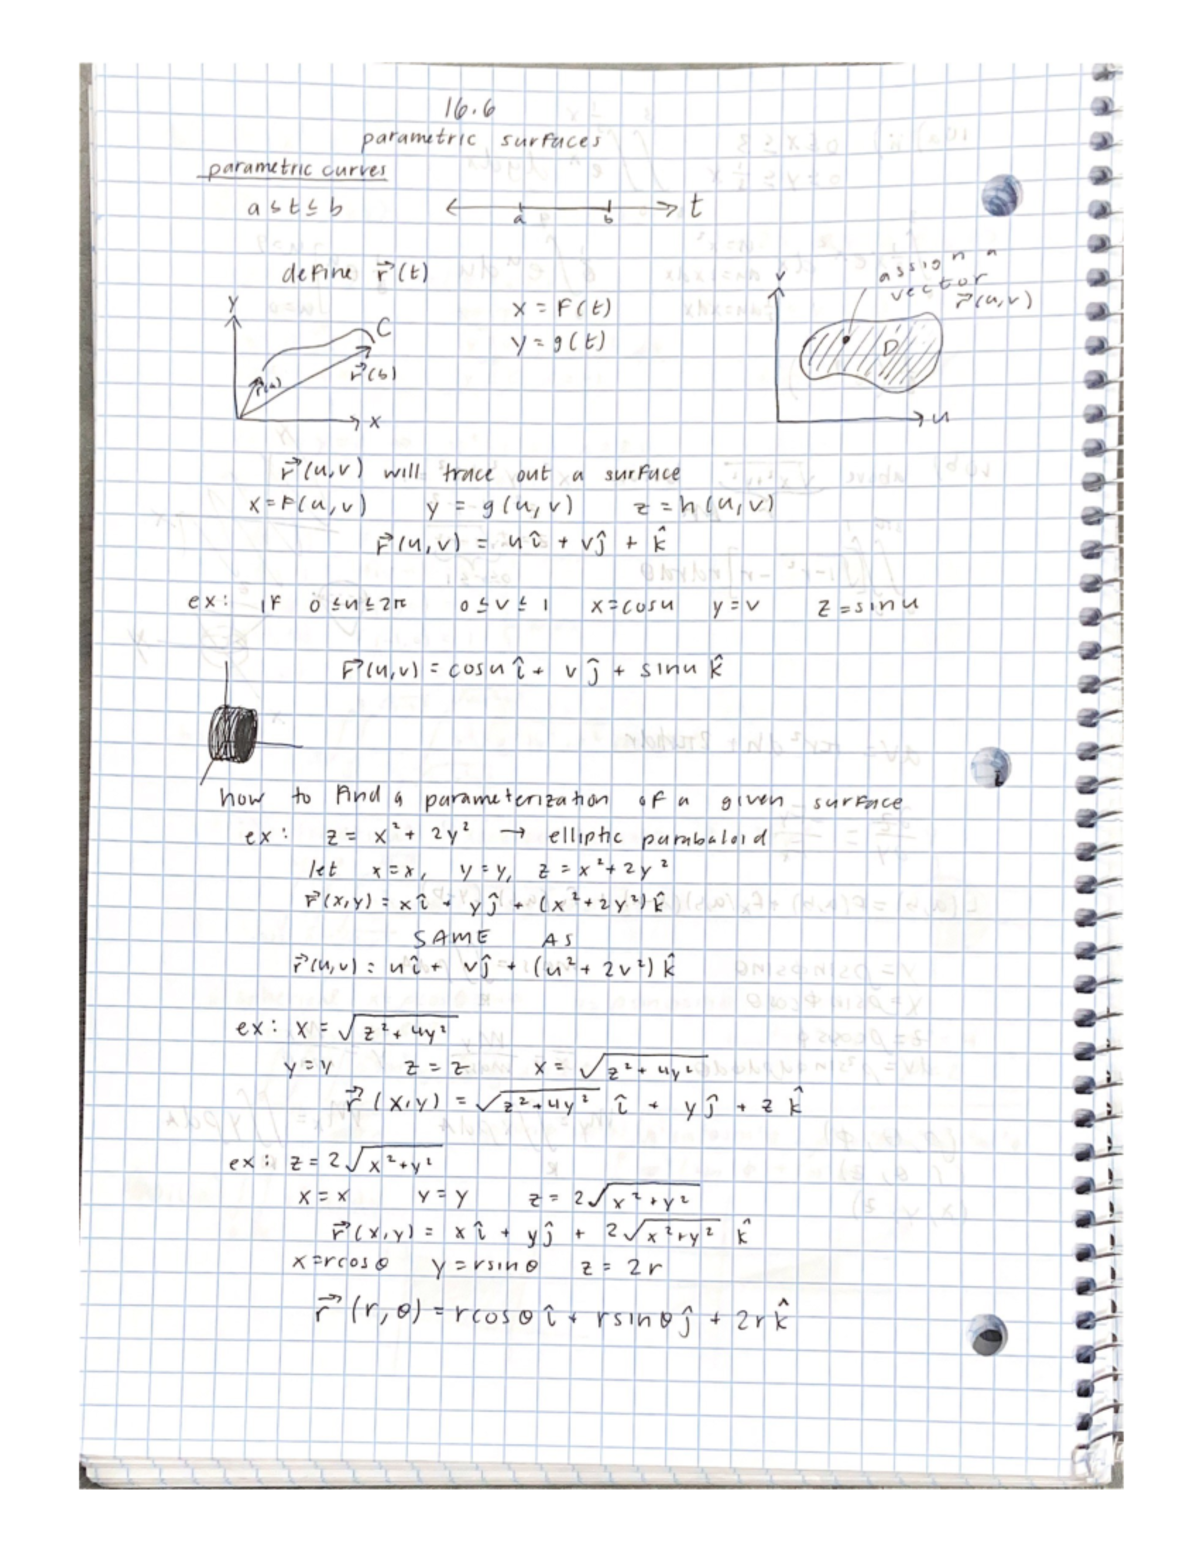 16.6
parametric surfaces
parametric curves
a ≤ t ≤ b
a b t
define r⃗(t)
x = f(t)
y = g(t)
y C r⃗(a) r⃗(b) x
v assign a vector r⃗(u,v) D u
r⃗(u,v) will trace out a surface
x = f(u,v) y = g(u,v) z = h(u,v)
r⃗(u,v) = uî + vĵ + k̂
ex: if 0 ≤ u ≤ 2π 0 ≤ v ≤ 1 x = cosu y = v z = sinu
r⃗(u,v) = cosu î + v ĵ + sinu k̂
how to find a parameterization of a given surface
ex: z = x² + 2y² → elliptic parabaloid
let x = x, y = y, z = x² + 2y²
r⃗(x,y) = xî + yĵ + (x² + 2y²) k̂
SAME AS
r⃗(u,v) = uî + vĵ + (u² + 2v²) k̂
ex: x = √(z² + 4y²)
y = y z = z x = √(z² + 4y²)
r⃗(x,y) = √(z² + 4y²) î + yĵ + z k̂
ex: z = 2√(x² + y²)
x = x y = y z = 2√(x² + y²)
r⃗(x,y) = xî + yĵ + 2√(x² + y²) k̂
x = rcosθ y = rsinθ z = 2r
r⃗(r,θ) = rcosθ î + rsinθ ĵ + 2r k̂